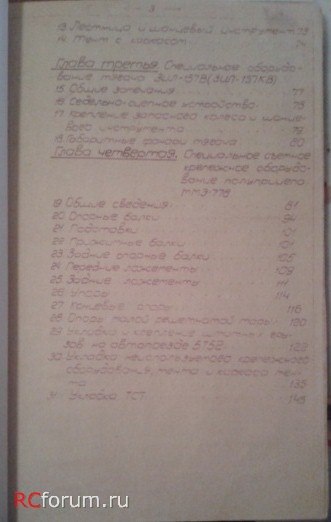 - 3 -
13 Лестница и шанцевый инструмент 73
14 Тент с каркасом 74
Глава третья Специальное оборудо-
вание тягача ЗИЛ-157В (ЗИЛ-157КВ)
15 Общие замечания 77
16 Седельно-сцепное устройство 78
17 Крепление запасного колеса и шанце-
вого инструмента 79
18 Габаритные фонари тягача 80
Глава четвертая. Специальное съемное
крепежное оборудо-
вание полуприцепа
ММЗ-778
19 Общие сведения 81
20 Опорные балки 94
21 Подставки 101
22 Прижимные балки 101
23 Задние опорные балки 105
24 Передние ложементы 109
25 Задние ложементы 111
26 Упоры 114
27 Концевые опоры 116
28 Опоры малой решетчатой 120
29 Укладка и крепление
на автопоезде 5Т52 122
30 Укладка неиспользуемого крепежного
оборудования, тента и каркаса тен-
та 135
31 Укладка ТСТ 148
RCforum.ru